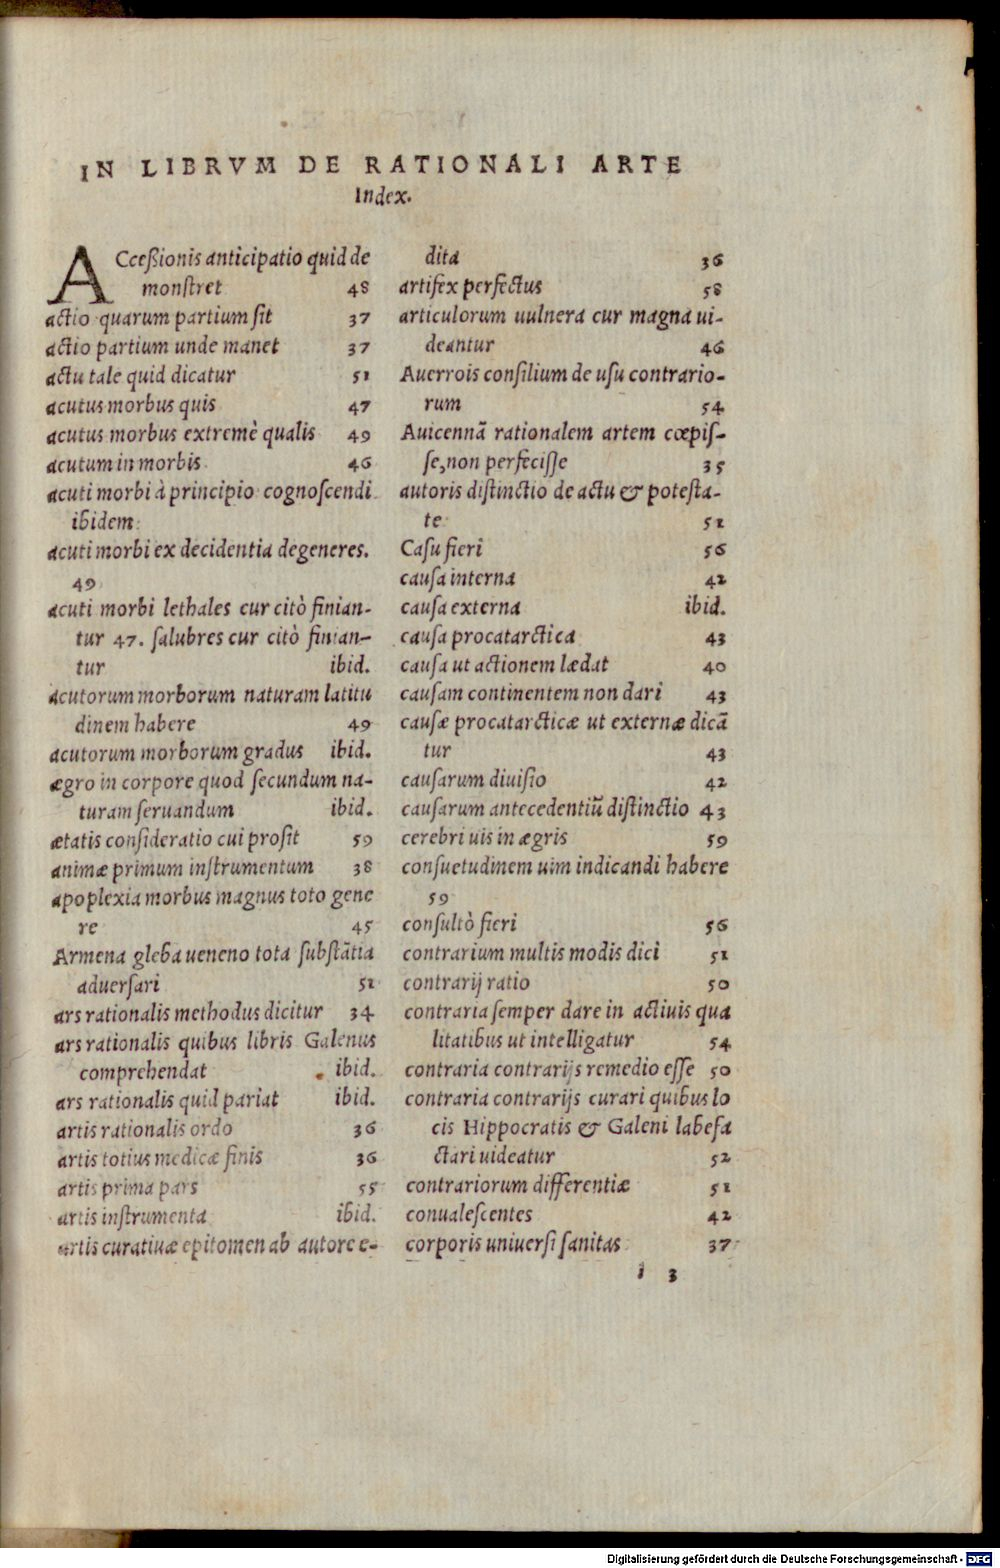 IN LIBRVM DE RATIONALI ARTE
Index.
ACceßionis anticipatio quid de
monſtret 48
actio quarum partium ſit 37
actio partium unde manet 37
actu tale quid dicatur 51
acutus morbus quis 47
acutus morbus extremè qualis 49
acutum in morbis 46
acuti morbi à principio cognoſcendi
ibidem
acuti morbi ex decidentia degeneres.
49
acuti morbi lethales cur citò finian-
tur 47. ſalubres cur citò finian-
tur ibid.
acutorum morborum naturam latitu
dinem habere 49
acutorum morborum gradus ibid.
ægro in corpore quod ſecundum na-
turam ſeruandum ibid.
ætatis conſideratio cui proſit 59
animæ primum inſtrumentum 38
apoplexia morbus magnus toto gene
re 45
Armena gleba ueneno tota ſubſtãtia
aduerſari 51
ars rationalis methodus dicitur 34
ars rationalis quibus libris Galenus
comprehendat ibid.
ars rationalis quid pariat ibid.
artis rationalis ordo 36
artis totius medicæ finis 36
artis prima pars 55
artis inſtrumenta ibid.
artis curatiuæ epitomen ab autore e-
dita 36
artifex perfectus 58
articulorum uulnera cur magna ui-
deantur 46
Auerrois conſilium de uſu contrario-
rum 54
Auicennã rationalem artem cœpiſ-
ſe, non perfeciſſe 35
autoris diſtinctio de actu & poteſta-
te 51
Caſu fieri 56
cauſa interna 42
cauſa externa ibid.
cauſa procatarctica 43
cauſa ut actionem lædat 40
cauſam continentem non dari 43
cauſæ procatarcticæ ut externæ dicã
tur 43
cauſarum diuiſio 42
cauſarum antecedentiũ diſtinctio 43
cerebri uis in ægris 59
conſuetudinem uim indicandi habere
59
conſultò fieri 56
contrarium multis modis dici 51
contrarij ratio 50
contraria ſemper dare in actiuis qua
litatibus ut intelligatur 54
contraria contrarijs remedio eſſe 50
contraria contrarijs curari quibus lo
cis Hippocratis & Galeni labefa
ctari uideatur 52
contrariorum differentiæ 51
conualeſcentes 42
corporis uniuerſi ſanitas 37
i 3
Digitalisierung gefördert durch die Deutsche Forschungsgemeinschaft - DFG